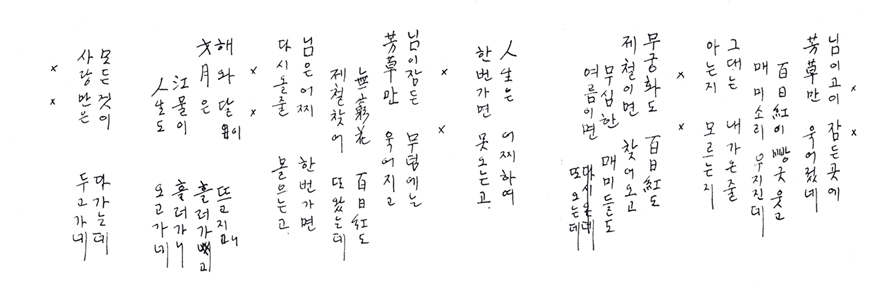 님이 고이 잠든 곳에
芳草만 욱어졌네
百日紅이 빵긋 웃고
매미소리 우지진데
그대는 내가 온줄
아는지 모르는지
× ×
무궁화도 百日紅도
제철이면 찾어오고
무심한 매미들도
여름이면 또 오는데
× ×
人生은 어찌하여
한번가면 못오는고
× ×
님이 잠든 무덤에는
芳草만 욱어지고
無窮花 百日紅도
제철찾어 또 왔는데
님은 어찌 한번가면
다시올줄 몰으는고
× ×
해와 달이 뜨고 지고
歲月은 흘러가고
江물이 흘러가니
人生도 오고가네
모든 것이 다 가는데
사랑만은 두고가네
× ×